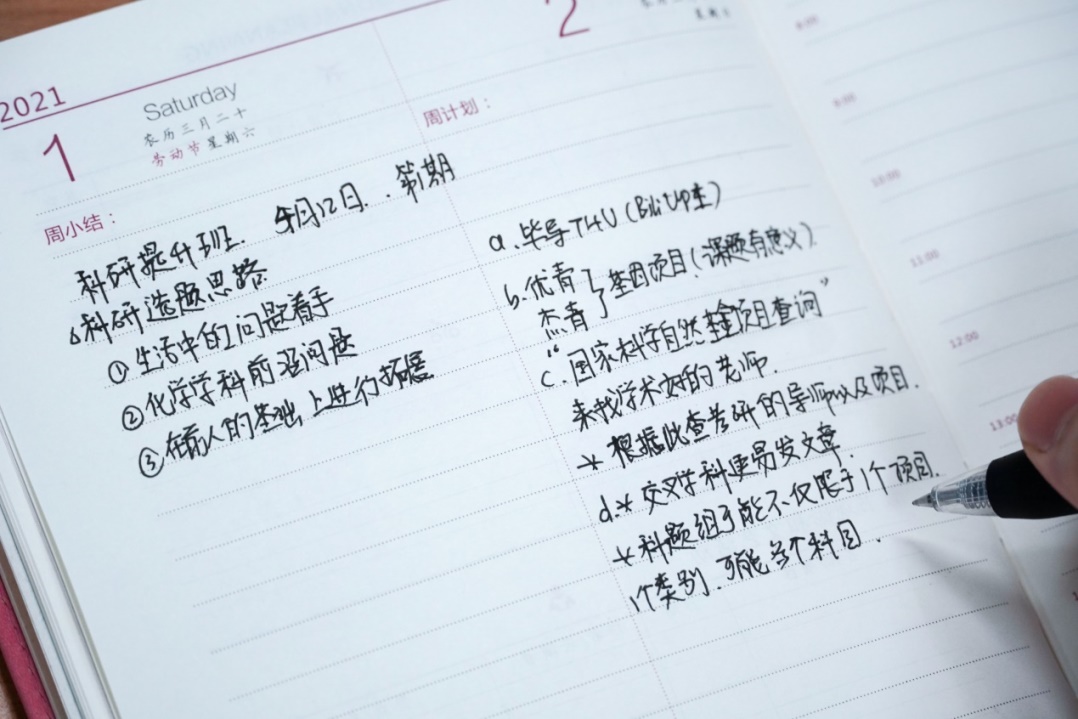 2021
1
Saturday
农历三月二十
劳动节 星期六
周小结：
科研提升班. 5月12日. 第1期
科研选题思路
① 生活中的问题着手
② 化学学科前沿问题
③ 在前人的基础上进行拓展
2
周计划：
a. 毕导THU (Bili up主)
b. 优青
杰青
基因项目. (课题有意义)
c. "国家科学自然基金项目查询"
来找学术好的老师.
* 根据此查考研的导师以及项目.
d. * 交叉学科更易发文章
* 科题组可能不仅限于1个项目.
1个类别. 可能多个科目.
8:00
9:00
10:00
11:00
12:00
13:00